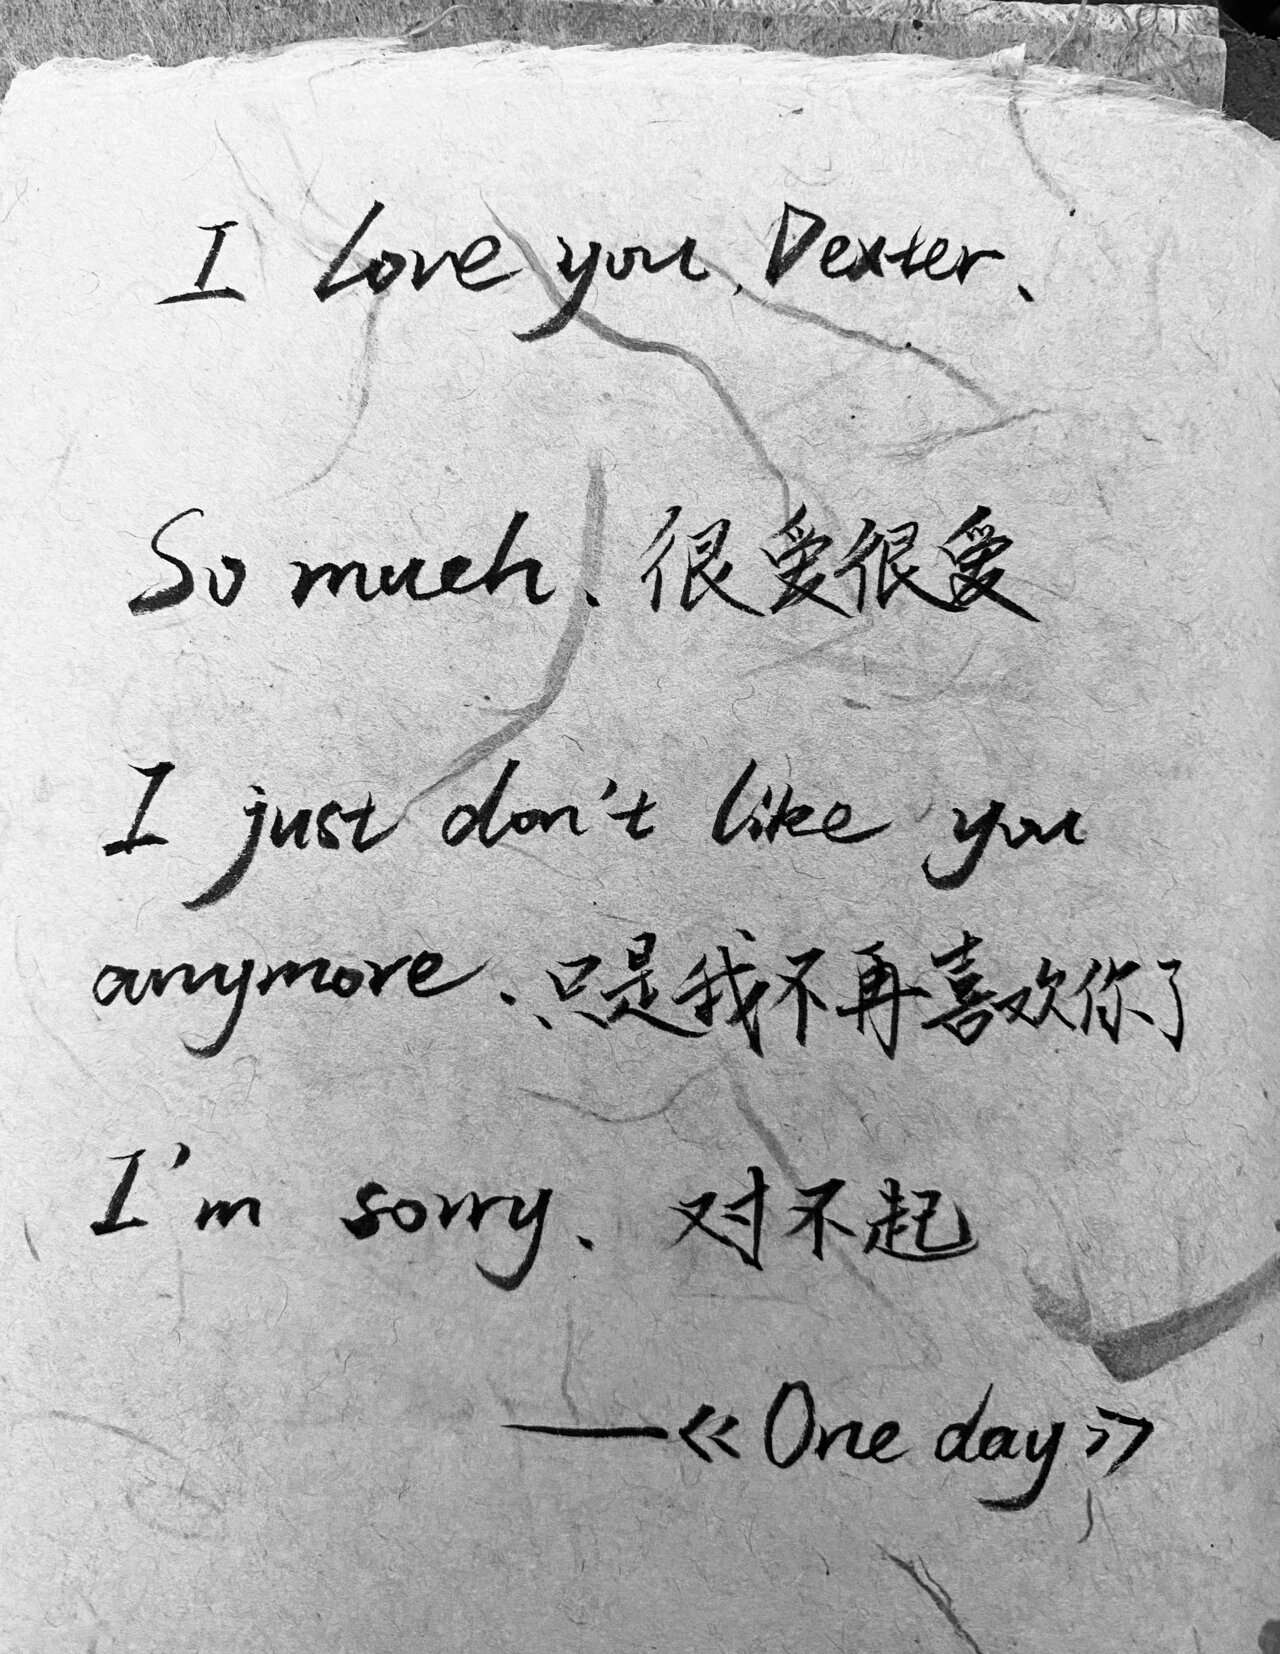 I love you, Dexter.
So much. 很爱很爱
I just don't like you
anymore. 只是我不再喜欢你了
I'm sorry. 对不起
——《One day》